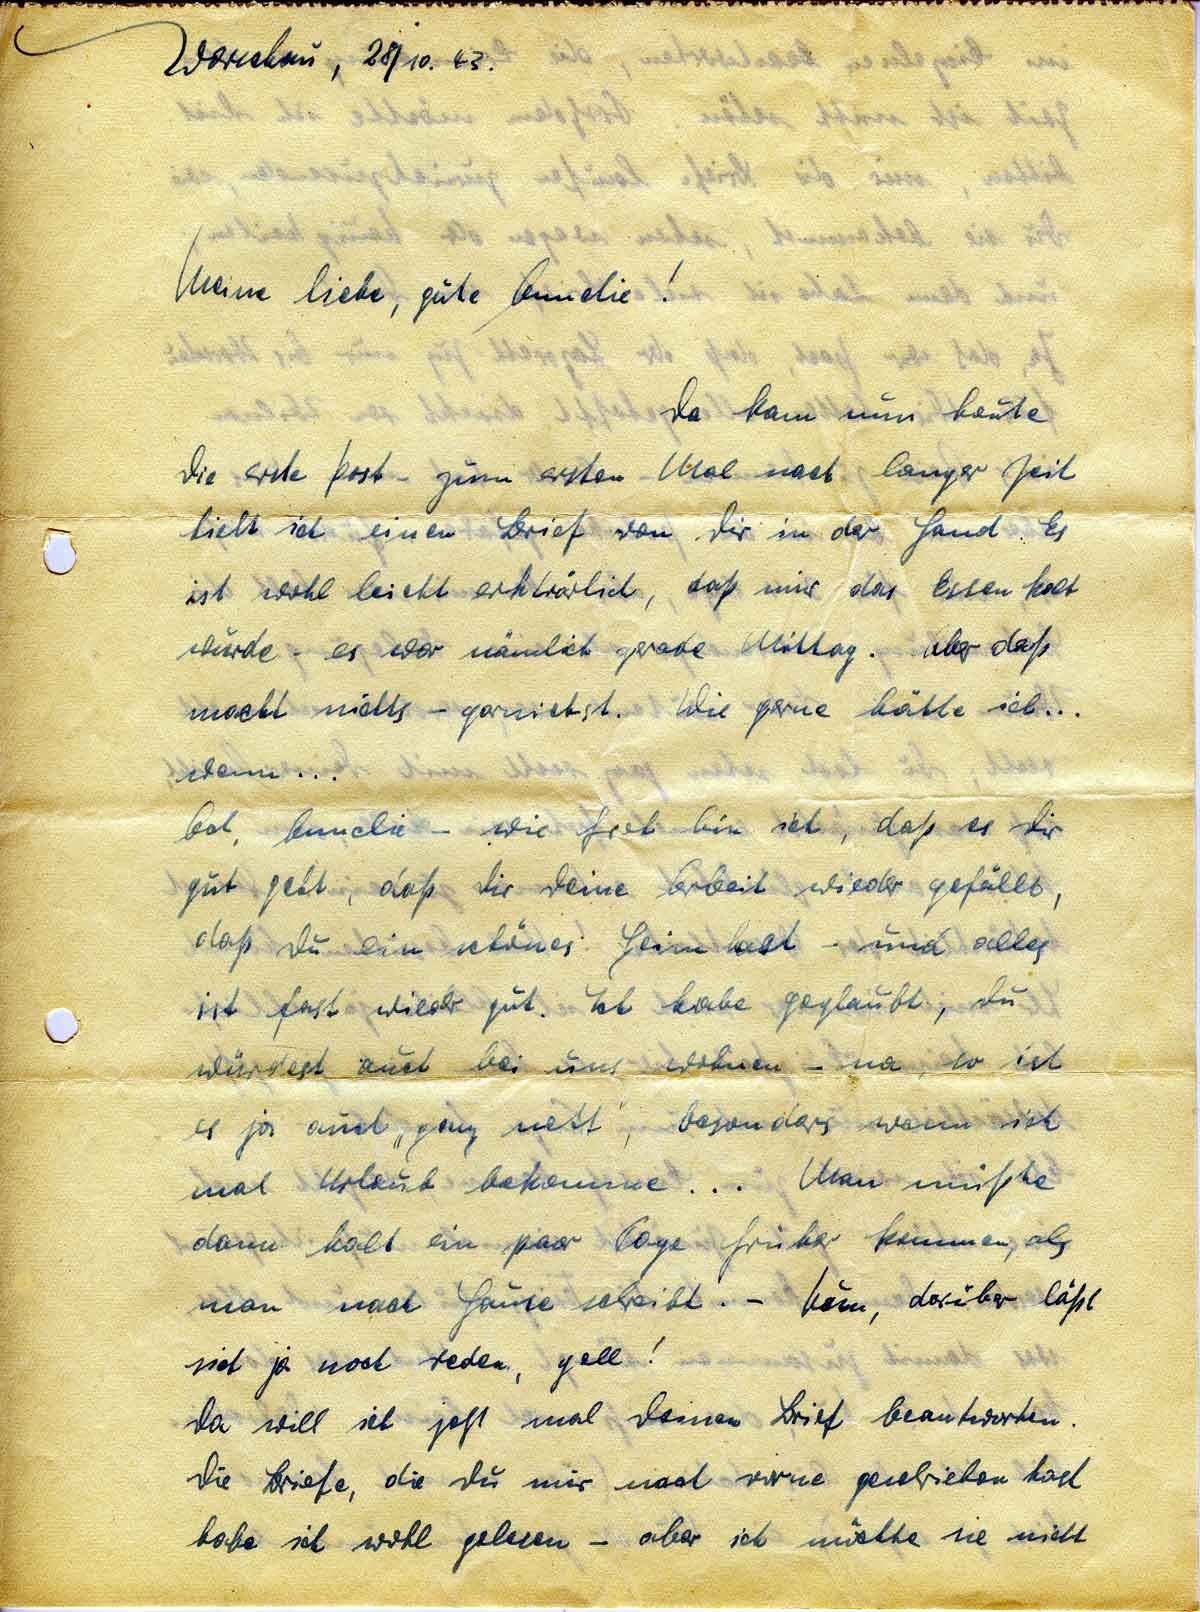 Warschau, 28/10. 43.
Meine liebe, gute Annelie!
Da kam nun heute
die erste Post – zum ersten Mal nach langer Zeit
hielt ich einen Brief von Dir in der Hand. Es
ist wohl leicht erklärlich, daß mir das Essen kalt
wurde – es war nämlich gerade Mittag. Aber daß
macht nichts – garnichst. Wie gerne hätte ich...
wenn...
Ach, Annelie – wie froh bin ich, daß es Dir
gut geht, daß Dir Deine Arbeit wieder gefällt,
daß Du ein schönes Heim hast – und alles
ist fast wieder gut. Ich habe geglaubt, Du
würdest auch bei uns wohnen – na, so ist
es ja auch „ganz nett“, besonders wenn ich
mal Urlaub bekomme... Man müßte
dann halt ein paar Tage früher kommen, als
man nach Hause schreibt. – darüber läßt
sich ja noch reden, gell!
Da will ich jetzt mal Deinen Brief beantworten.
Die Briefe, die Du mir nach vorne geschrieben hast
habe ich wohl gelesen – aber ich möchte sie nicht